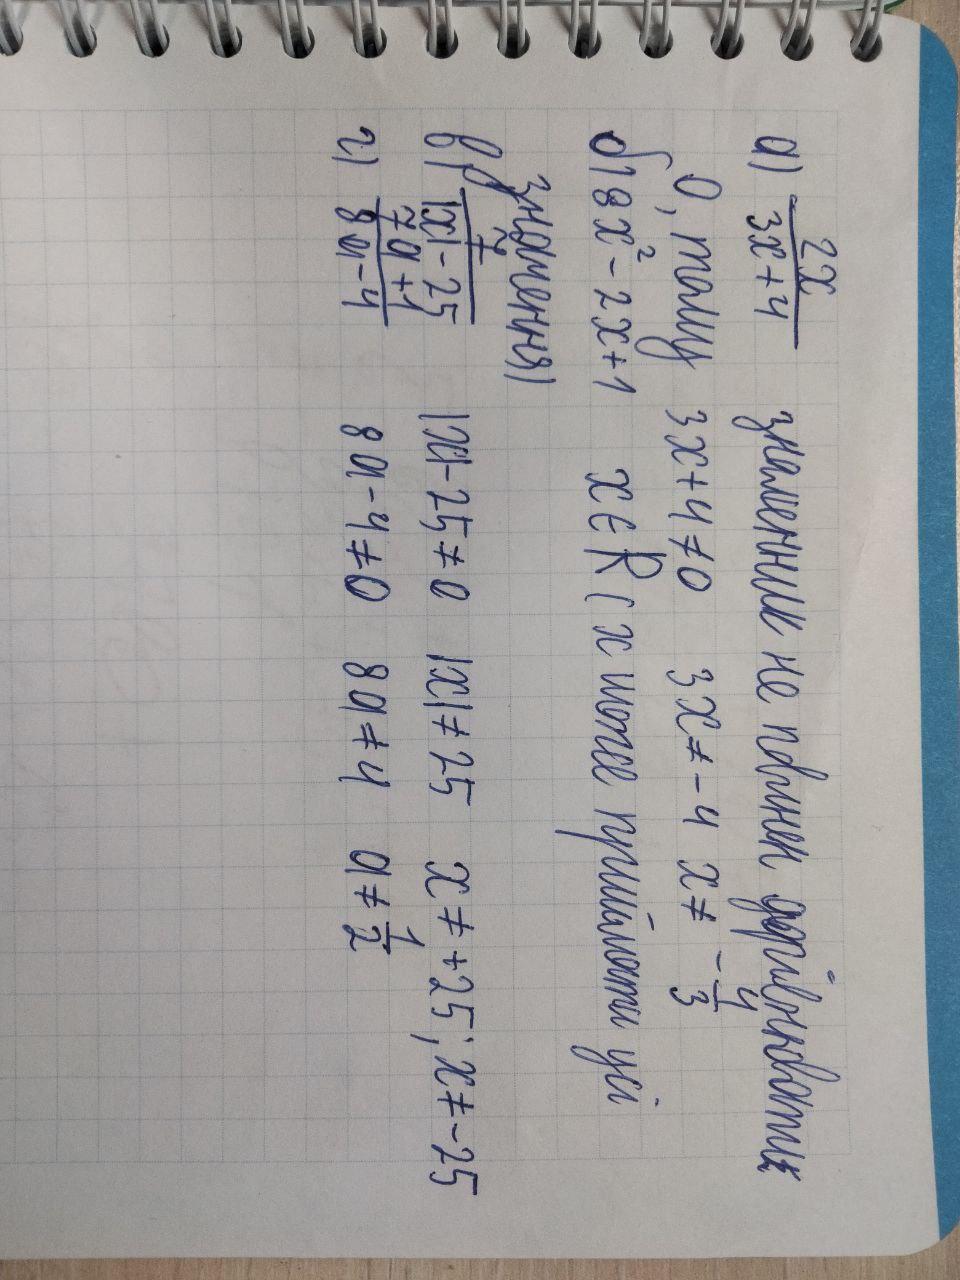 а) 2x/3x+4 знаменник не повинен дорівнювати
0, тому 3x+4≠0 3x≠-4 x≠ -4/3
б) 8x²-2x+1 x∈R (x може приймати усі
значення)
в) 7/|x|-25 |x|-25≠0 |x|≠25 x≠+25; x≠-25
г) 7a+1/8a-4 8a-4≠0 8a≠4 a≠1/2